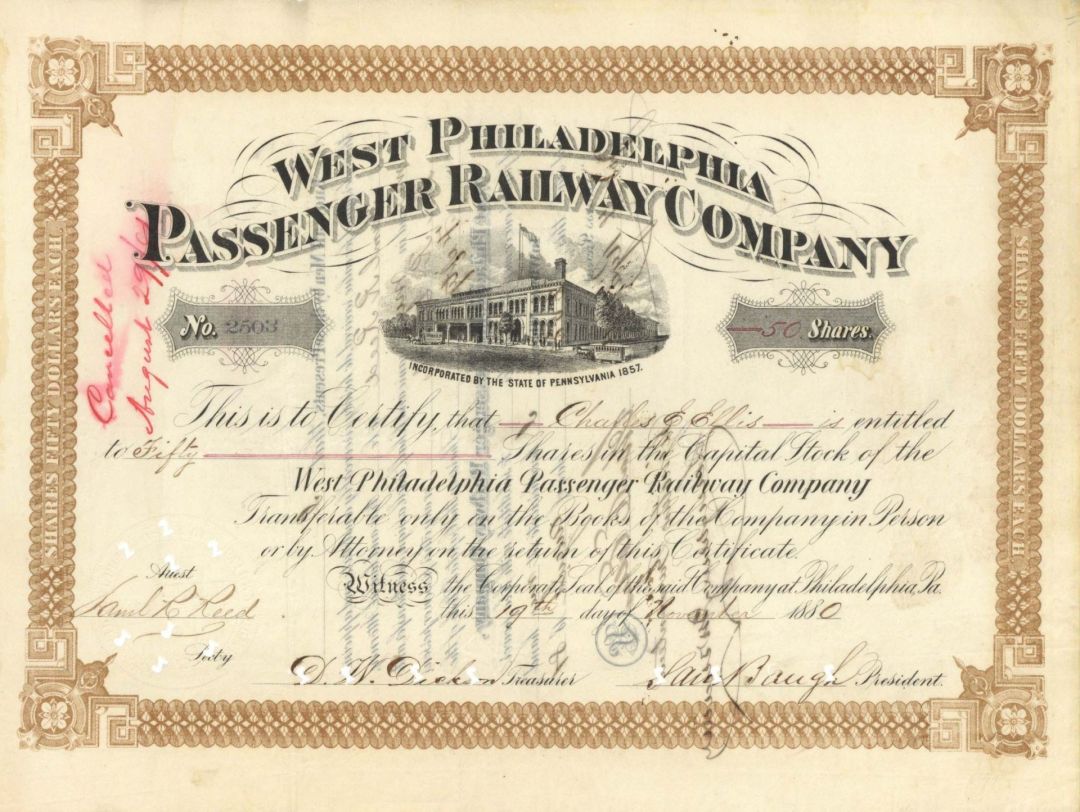 WEST PHILADELPHIA
PASSENGER RAILWAY COMPANY
No. 2503
50 Shares.
INCORPORATED BY THE STATE OF PENNSYLVANIA 1857.
Cancelled
August 29
This is to Certify, that Charles E Ellis is entitled
to Fifty Shares in the Capital Stock of the
West Philadelphia Passenger Railway Company
Transferable only on the Books of the Company in Person
or by Attorney on the return of this Certificate.
Witness the Corporate Seal of the said Company at Philadelphia Pa.
this 19th day of November 1880
Attest
Saml K Reed
Secty
D. W. Dickson Treasurer
Baugh President.
SHARES FIFTY DOLLARS EACH
SHARES FIFTY DOLLARS EACH